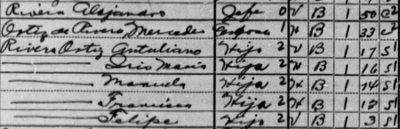 Rivera Alejandro Jefe 0 V B 1 50 C2
Ortiz de Rivera Mercedes Esposa 1 H B 1 33 C2
Rivera Ortiz Antuliano Hijo 2 V B 1 17 S1
Luis Maria Hija 2 H B 1 16 S1
Manuela Hija 2 H B 1 14 S1
Francisca Hija 2 H B 1 12 S1
Felipe Hijo 2 V B 1 3 S1